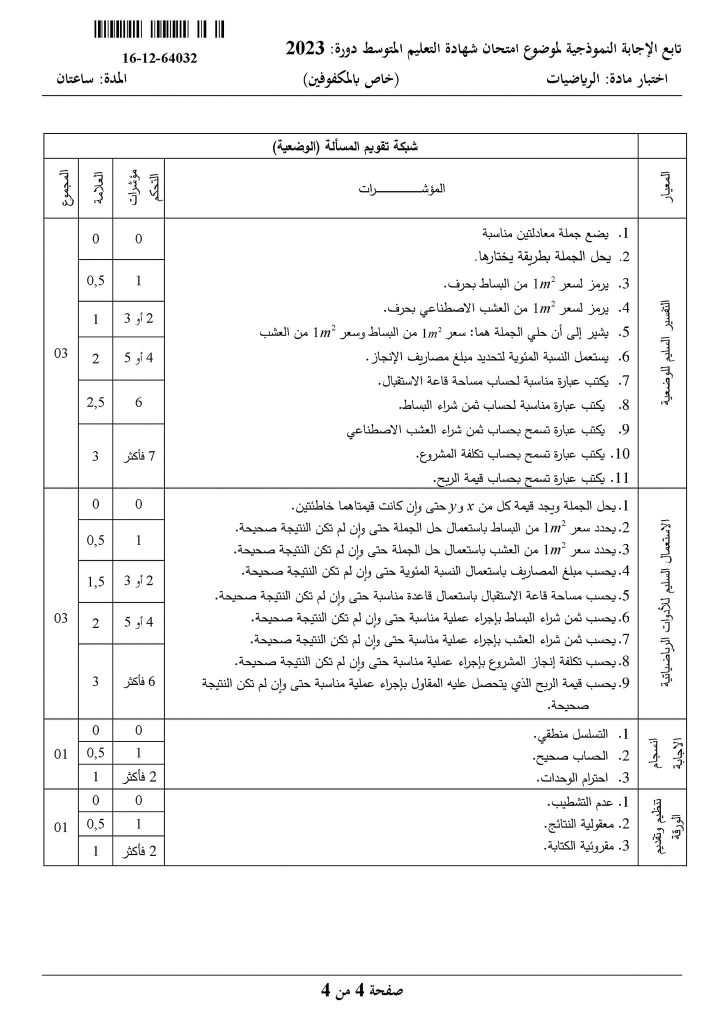 16-12-64032
تابع الإجابة النموذجية لموضوع امتحان شهادة التعليم المتوسط دورة: 2023
اختبار مادة: الرياضيات (خاص بالمكفوفين) المدة: ساعتان
شبكة تقويم المسألة (الوضعية)
المعيار المؤشـــــــــــرات مؤشرات التحكم العلامة المجموع
التفسير السليم للوضعية
1. يضع جملة معادلتين مناسبة
2. يحل الجملة بطريقة يختارها.
3. يرمز لسعر 1m² من البساط بحرف.
4. يرمز لسعر 1m² من العشب الاصطناعي بحرف.
5. يشير إلى أن حلي الجملة هما: سعر 1m² من البساط وسعر 1m² من العشب
6. يستعمل النسبة المئوية لتحديد مبلغ مصاريف الإنجاز.
7. يكتب عبارة مناسبة لحساب مساحة قاعة الاستقبال.
8. يكتب عبارة مناسبة لحساب ثمن شراء البساط.
9. يكتب عبارة تسمح بحساب ثمن شراء العشب الاصطناعي
10. يكتب عبارة تسمح بحساب تكلفة المشروع.
11. يكتب عبارة تسمح بحساب قيمة الربح.
0 0
1 0,5
2 أو 3 1
4 أو 5 2
6 2,5
7 فأكثر 3
03
الاستعمال السليم للأدوات الرياضياتية
1. يحل الجملة ويجد قيمة كل من x و y حتى وإن كانت قيمتاهما خاطئتين.
2. يحدد سعر 1m² من البساط باستعمال حل الجملة حتى وإن لم تكن النتيجة صحيحة.
3. يحدد سعر 1m² من العشب باستعمال حل الجملة حتى وإن لم تكن النتيجة صحيحة.
4. يحسب مبلغ المصاريف باستعمال النسبة المئوية حتى وإن لم تكن النتيجة صحيحة.
5. يحسب مساحة قاعة الاستقبال باستعمال قاعدة مناسبة حتى وإن لم تكن النتيجة صحيحة.
6. يحسب ثمن شراء البساط بإجراء عملية مناسبة حتى وإن لم تكن النتيجة صحيحة.
7. يحسب ثمن شراء العشب بإجراء عملية مناسبة حتى وإن لم تكن النتيجة صحيحة.
8. يحسب تكلفة إنجاز المشروع بإجراء عملية مناسبة حتى وإن لم تكن النتيجة صحيحة.
9. يحسب قيمة الربح الذي يتحصل عليه المقاول بإجراء عملية مناسبة حتى وإن لم تكن النتيجة
صحيحة.
0 0
1 0,5
2 أو 3 1,5
4 أو 5 2
6 فأكثر 3
03
انسجام الاجابة
1. التسلسل منطقي.
2. الحساب صحيح.
3. احترام الوحدات.
0 0
1 0,5
2 فأكثر 1
01
تنظيم وتقديم الورقة
1. عدم التشطيب.
2. معقولية النتائج.
3. مقروئية الكتابة.
0 0
1 0,5
2 فأكثر 1
01
صفحة 4 من 4